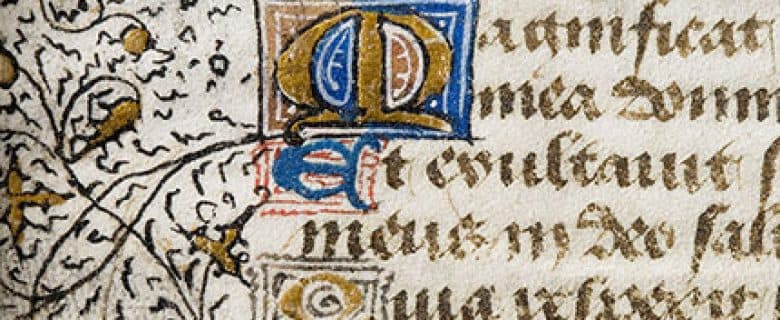 Magnificat
mea dom
Et exultauit
meus in deo sal
Quia